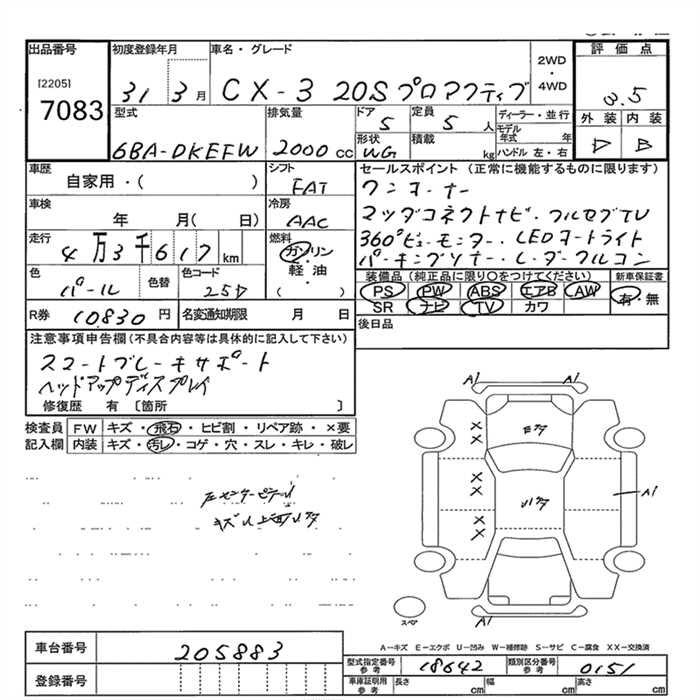 出品番号 初度登録年月 車名・グレード 評価点
[2205] 7083
31 3月 CX-3 20S プロアクティブ
2WD ・ 4WD
3.5
型式 排気量 ドア 定員 ディーラー・並行 外装 内装
6BA-DKEFW 2000 cc 5 5人
モデル年式 年
形状 積載 ハンドル 左・右
WG kg
D B
車歴 シフト セールスポイント (正常に機能するものに限ります)
自家用・( ) FAT ワンオーナー
車検 冷房
年 月( 日) AAC マツダコネクトナビ・フルセグTV
走行 燃料 360°ビューモニター・LEDオートライト
4万3千617km ガソリン・軽油 ( ・ ) パーキングソナー・レーダークルコン
色 色替 色コード 装備品 (純正品に限り○をつけてください) 新車保証書
パール 25D PS PW ABS エアB AW 有・無
SR ナビ TV カワ
R券 10830 円 名変通知期限 月 日
後日品
注意事項申告欄(不具合内容等は具体的に記入して下さい)
スマートブレーキサポート
ヘッドアップディスプレイ
修復歴 有 〔箇所 〕
検査員 FW キズ・飛石・ヒビ割・リペア跡・×要
記入欄 内装 キズ・汚レ・コゲ・穴・スレ・キレ・破レ
A1 A1
A1
A1
スペア
A-キズ E-エクボ U-凹み W-補修跡 S-サビ C-腐食 XX-交換済
車台番号 205883
型式指定番号 参考 18642 類別区分番号 参考 0151
登録番号
車庫証明用 参考 長さ cm 幅 cm 高さ cm